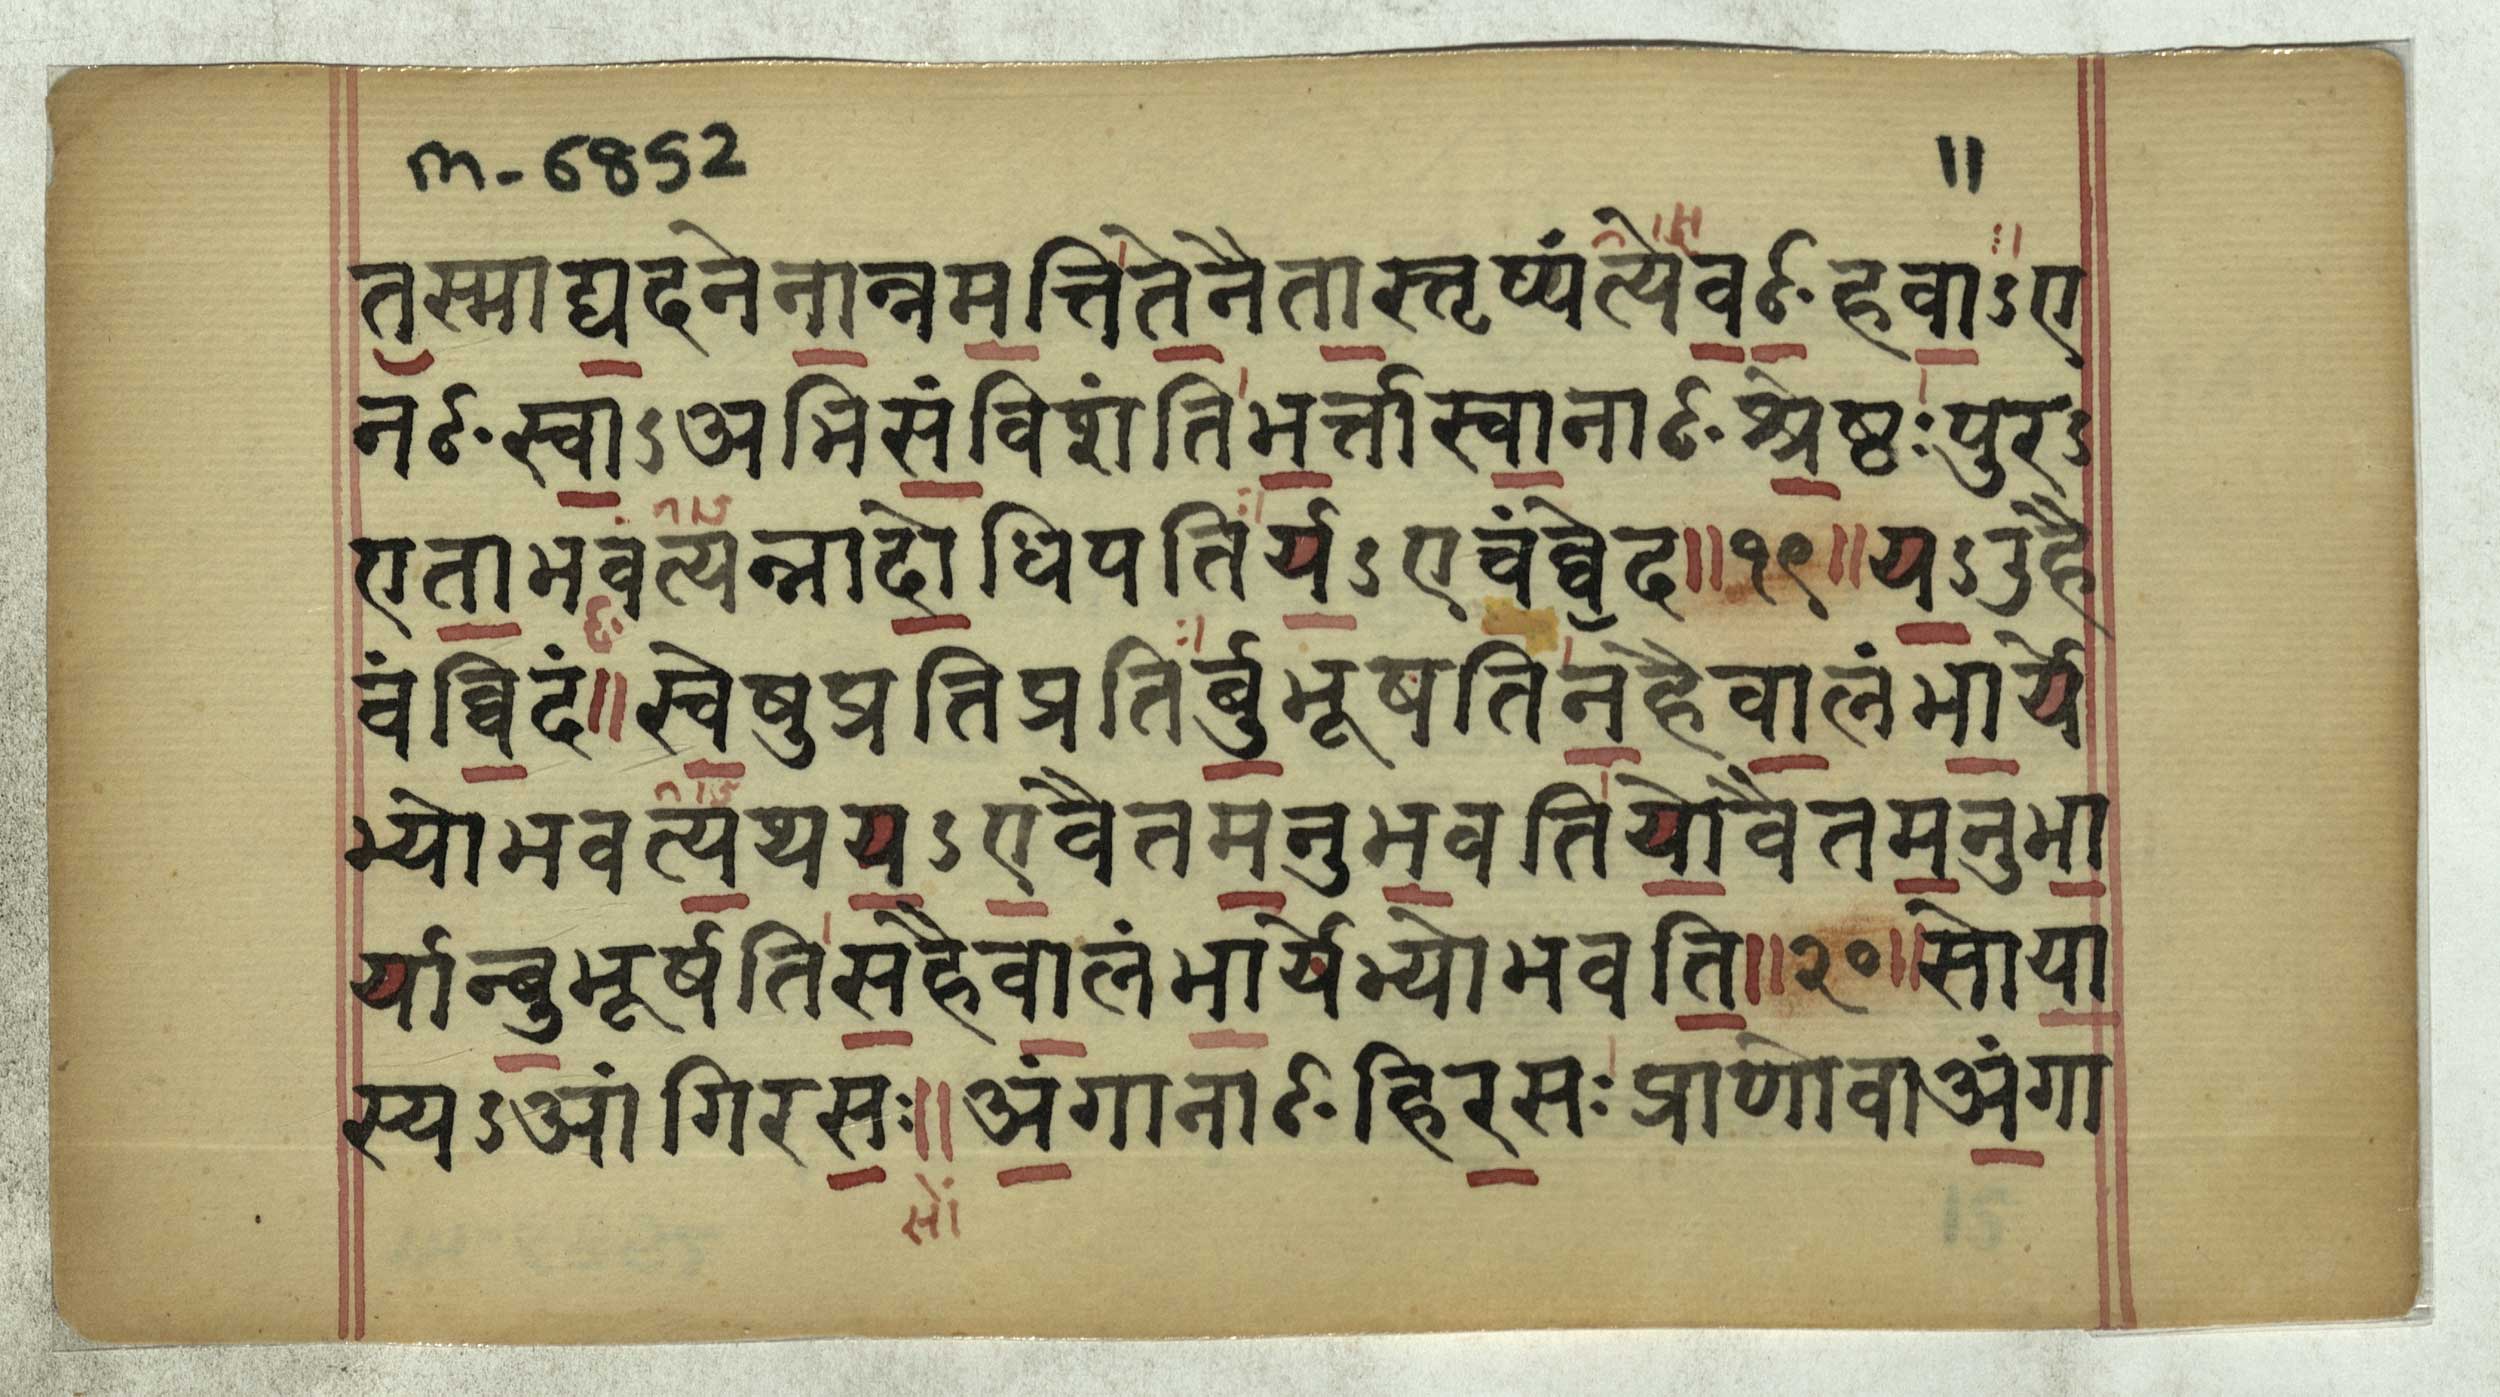 m-6852 11
तस्माद्यदनेनान्नमत्तितेनैतास्तृप्यंत्येवꣳहवाऽए
नꣳस्वाऽअभिसंविशंतिभर्त्तास्वानाꣳश्रेष्ठःपुरऽ
एताभवत्यन्नादोधिपतिर्यऽएवंव्वेद॥१९॥यऽउहै
वंव्विदं॥स्वेषुप्रतिप्रतिर्बुभूषतिनहैवालंभार्ये
भ्योभवत्यथयऽएवैतमनुभवतियोवैतमनुभा
र्यान्बुभूर्षतिसहैवालंभार्येभ्योभवति॥२०॥सोया
स्यऽआंगिरसः॥अंगानाꣳहिरसःप्राणोवाअंगा
सों